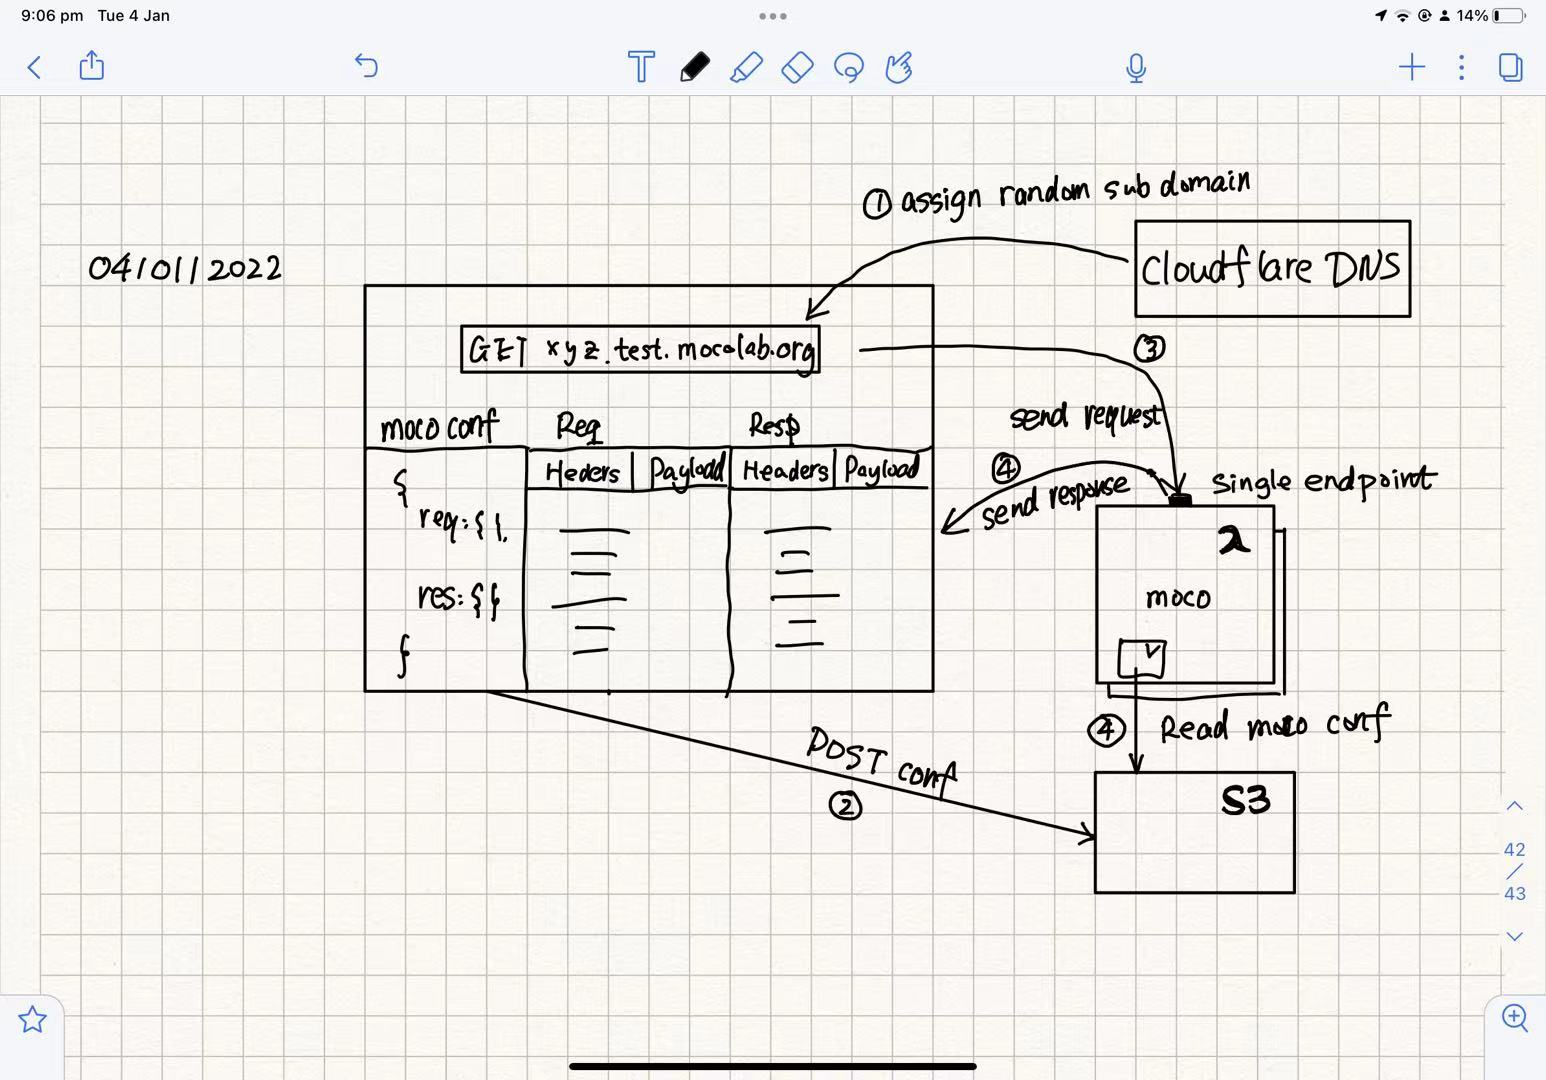 9:06 pm Tue 4 Jan
14%
① assign random sub domain
Cloudflare DNS
04/01/2022
GET xyz.test.mocolab.org
③
send request
moco conf Req Resp
Heders Payload Headers Payload
④
send response
single endpoint
{
req:{ },
res:{}
}
λ
moco
④ Read moco conf
POST conf
②
S3
42
/
43